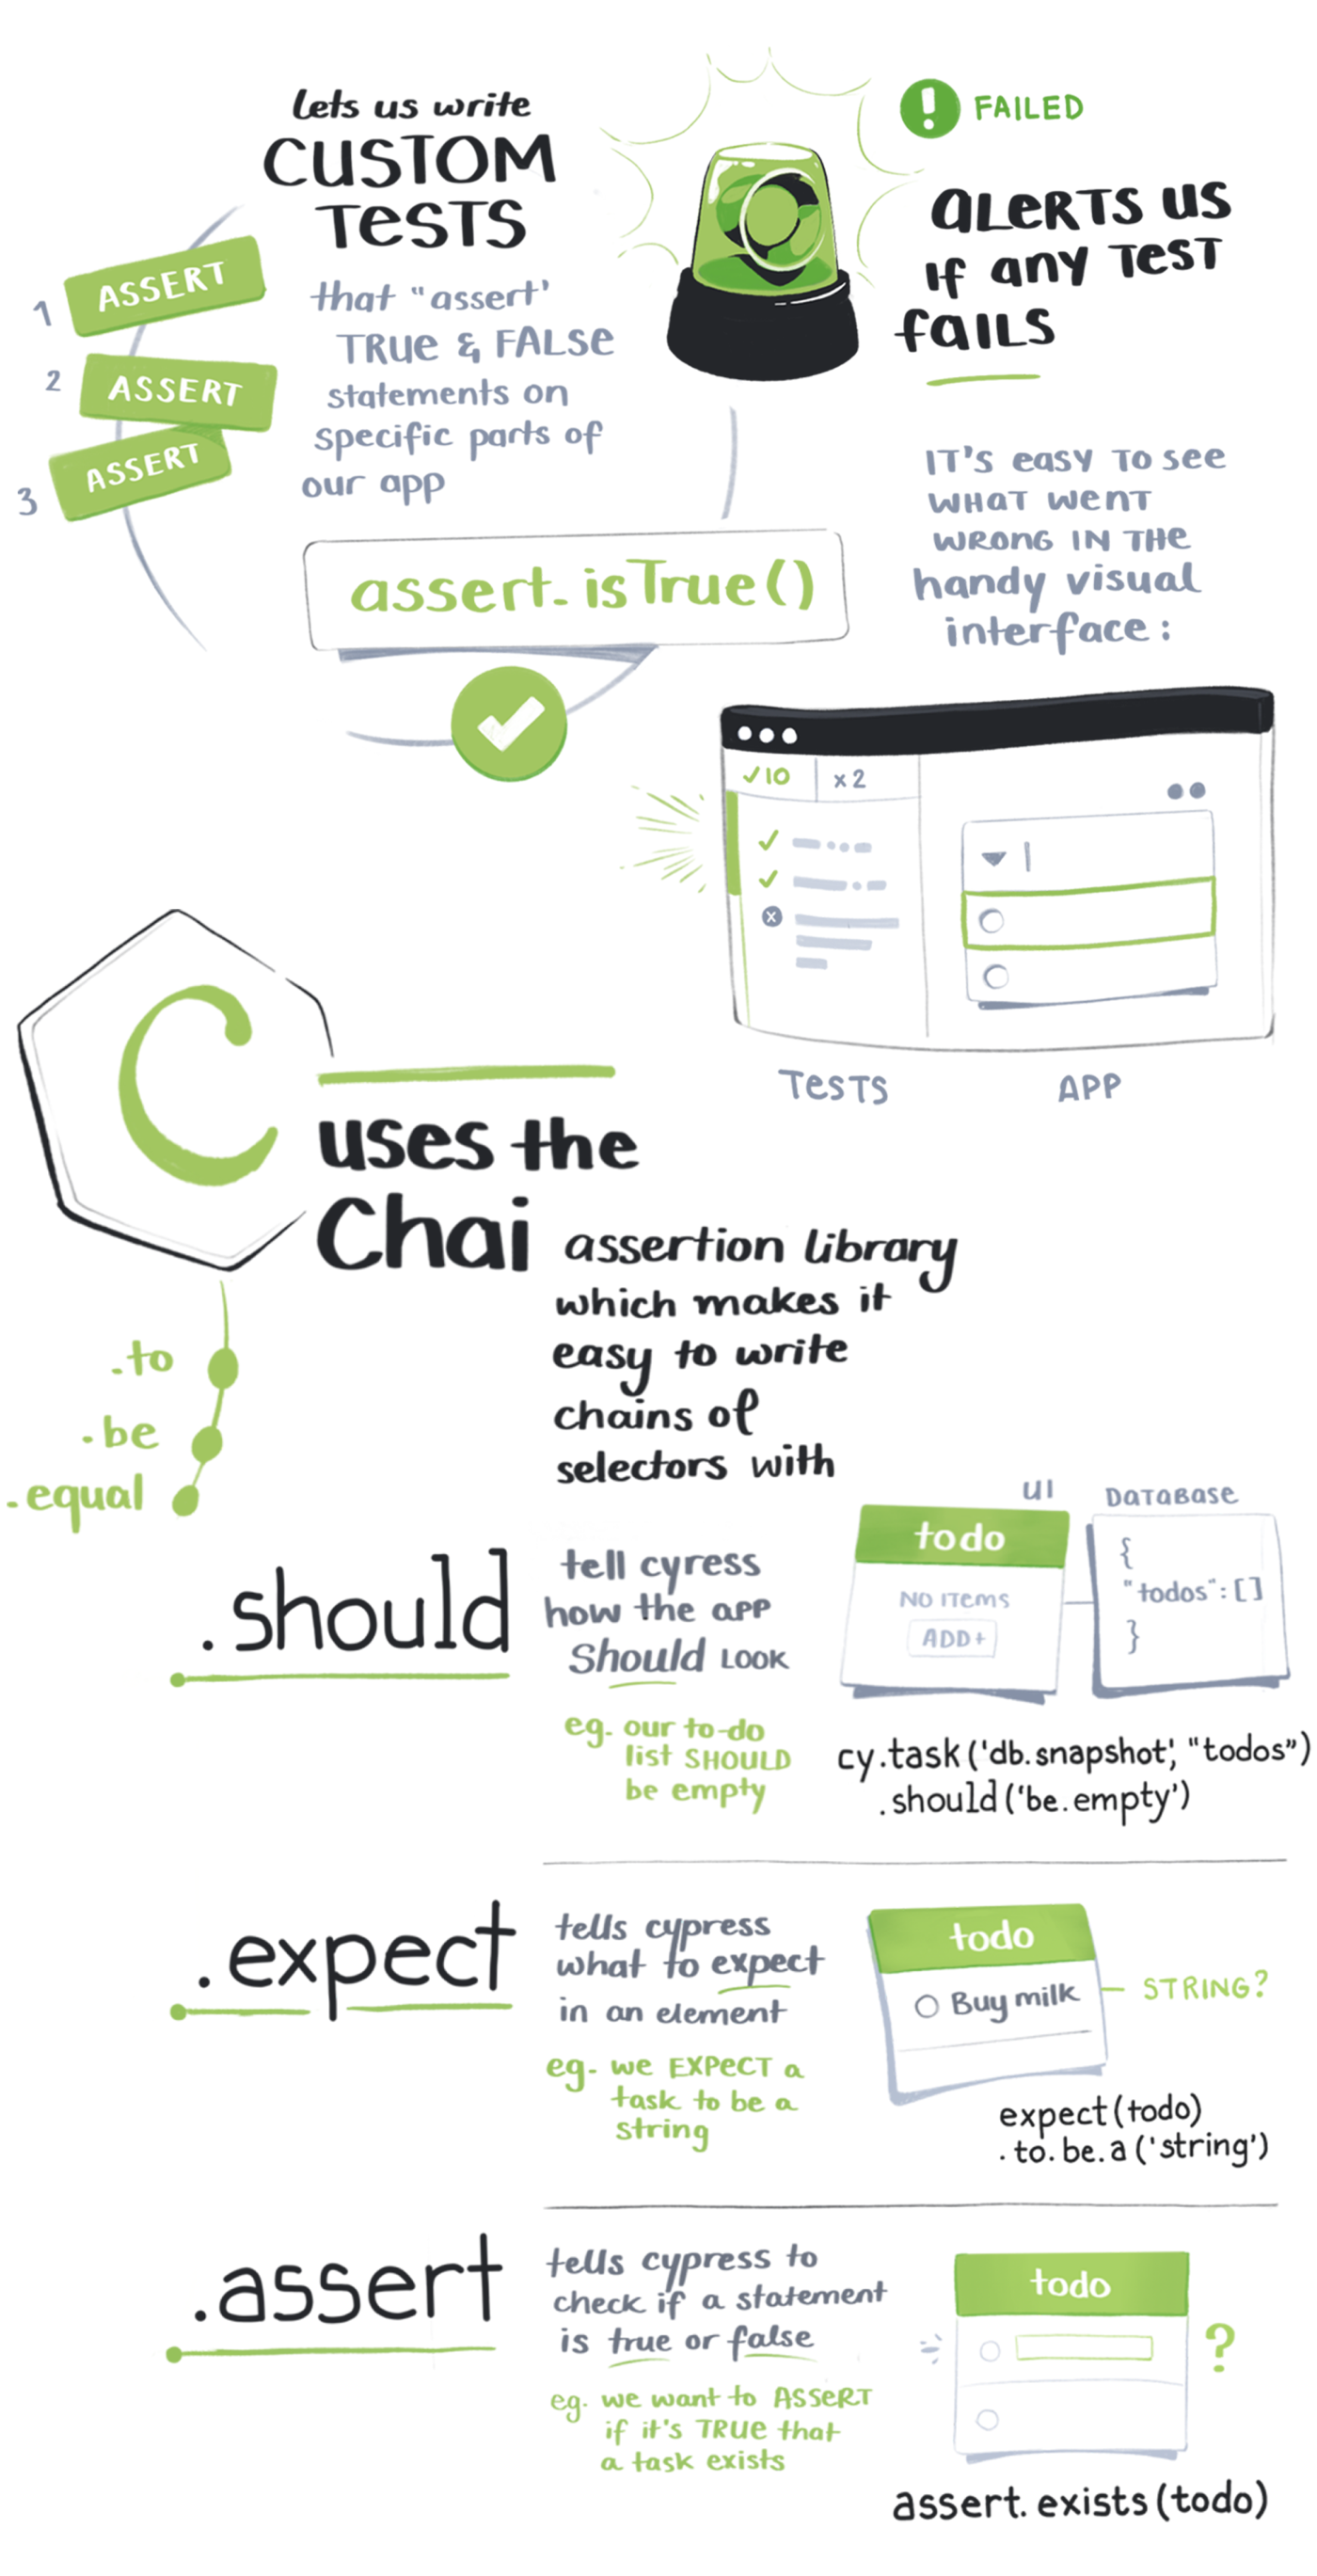 Lets us write
CUSTOM
TESTS
1 ASSERT
2 ASSERT
3 ASSERT
that "assert'
TRUE & FALSE
statements on
specific parts of
our app
assert.isTrue()
! FAILED
ALERTS US
IF ANY TEST
FAILS
IT'S EASY TO SEE
WHAT WENT
WRONG IN THE
handy visual
interface:
✓10 x2
TESTS APP
C
uses the
Chai assertion library
which makes it
easy to write
chains of
selectors with
.to
.be
.equal
.should
tell cyress
how the app
Should LOOK
eg. our to-do
list SHOULD
be empty
UI
todo
NO ITEMS
ADD+
DATABASE
{
"todos": []
}
cy.task('db.snapshot', "todos")
.should('be.empty')
.expect
tells cypress
what to expect
in an element
eg. we EXPECT a
task to be a
string
todo
Buy milk
STRING?
expect(todo)
.to.be.a('string')
.assert
tells cypress to
check if a statement
is true or false
eg. we want to ASSERT
if it's TRUE that
a task exists
todo
?
assert.exists(todo)